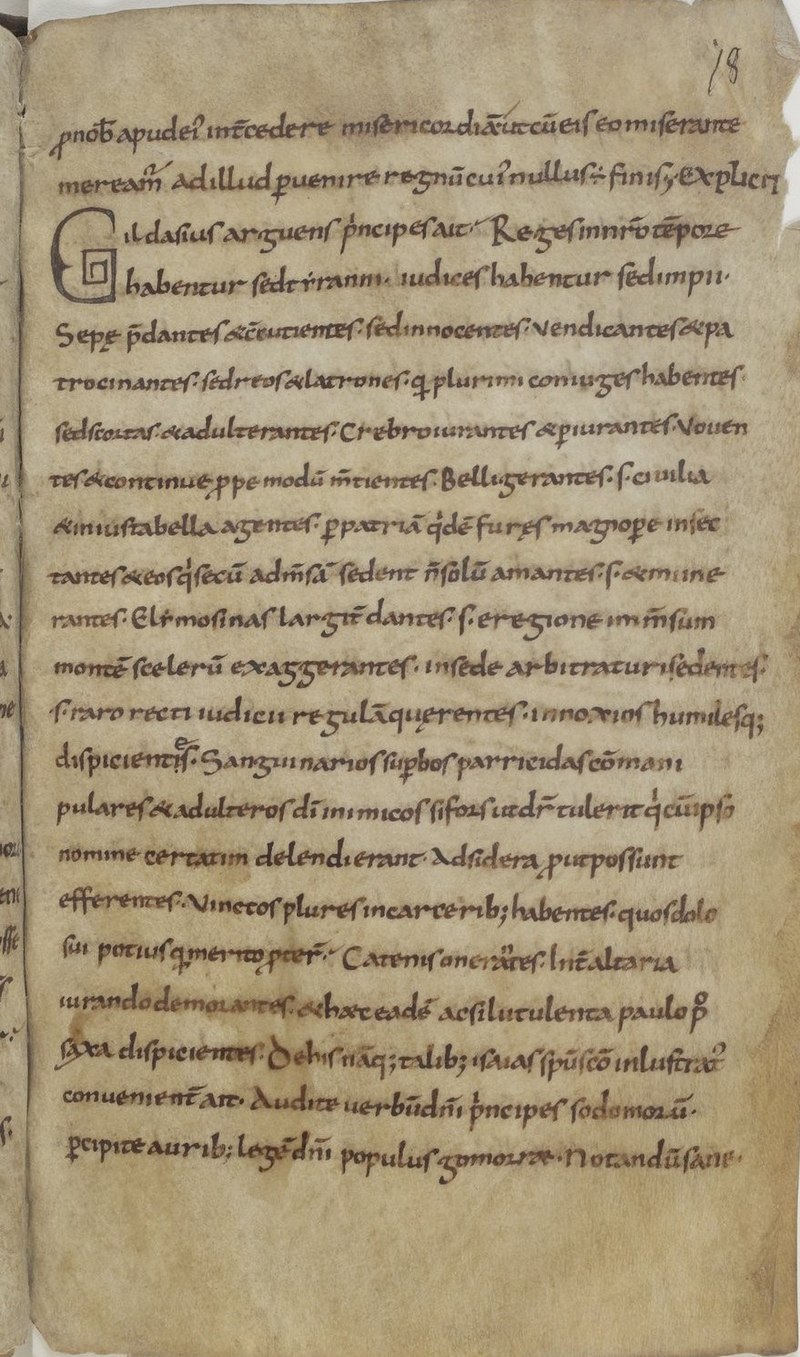 78
ꝓnob̄ apud eī int̄cedere misericordiā ut cū eis eo miserante
mereām̄ ad illud ꝑuenire regnū cuī nullus ÷ finis; Explicit
Gildasius arguens p̄ncipes ait· Reges in nr̄o tēpore
habentur sed tẏranni· iudices habentur sed impii·
Sepę p̄dantes &c̄cutientes· sed innocentes· Vendicantes & pa
trocinantes· sed reos & latrones· qꝫ plurimi coniuges habentes·
sed scortas· & adulterantes· Crebro iurantes & ꝑiurantes· Vouen
tes & continuę ꝓpe modū m̄tientes· Belligerantes· s· ciuilia
& iniusta bella agentes· ꝑ patriā qͥdē furęs magnopere insec
tantes & eos qͥ secū ad m̄sā sedent n̄ solū amantes· s· & mune
rantes· Elẏmosinas largit̄ dantes· s· e regione imm̄sum
montē scelerū exaggerantes· in sede arbitraturi sedentes·
s· raro recti iudicii regulā quęrentes· innoxios humilesq;
dispicientes· Sanguinarios suꝑbos parricidas cōmani
pulares & adulteros dī inimicos si fors ut dr̄ tulerit qͥ cū ipso
nomine certatim delendi erant· Ad sidera ꝓut possunt
efferentes· Vinctos plures in carcerib; habentes· quos dolo
sui potius qꝫ merito ꝓter̄· Catenis onerātes· Int̄ altaria
iurando demorantes· & hæc eadē ac si lutulenta paulo pꝰ
saxa dispicientes· De his nāq; talib; isaias sp̄u sc̄o inlustratꝰ
conuenient̄ ait· Audite uerbū dn̄i p̄ncipes sodomorū·
ꝑcipite aurib; legē dn̄i populus gomorræ· Notandū sane·